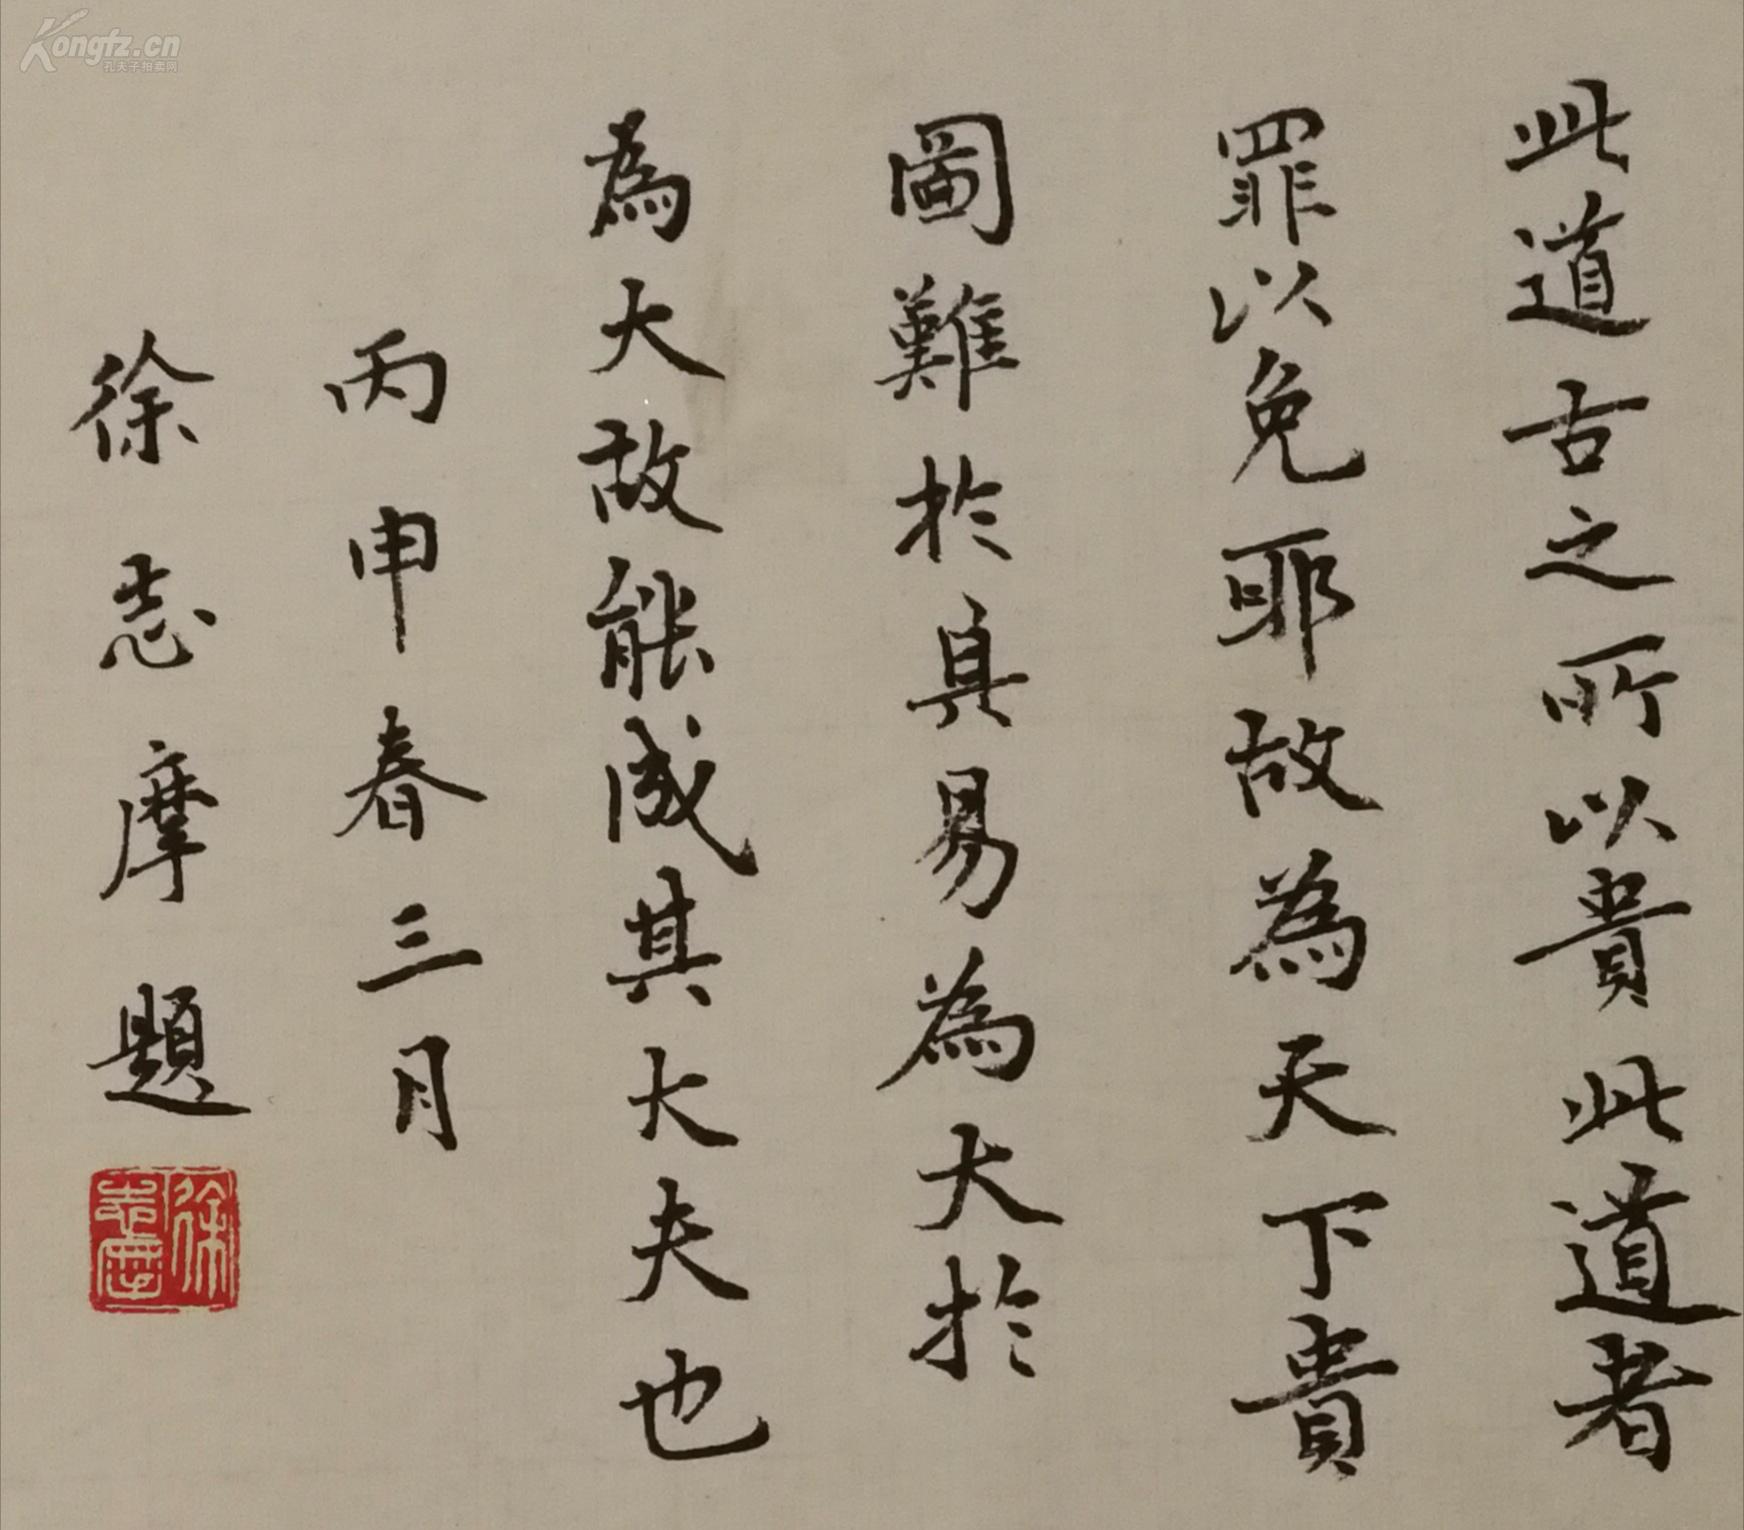 此道古之所以貴此道者
罪以免耶故為天下貴
圖難於具易為大於
為大故能成其大夫也
丙申春三月
徐志摩題
徐志摩
Kongfz.cn
孔夫子拍卖网